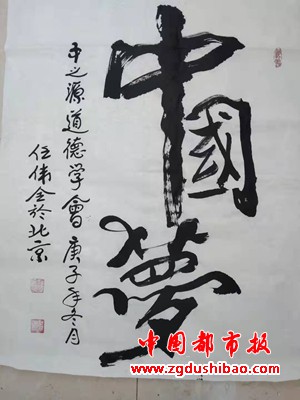 中國夢
中之源道德学會 庚子年冬月
任伟全於北京
中国都市报
www.zgdushibao.com